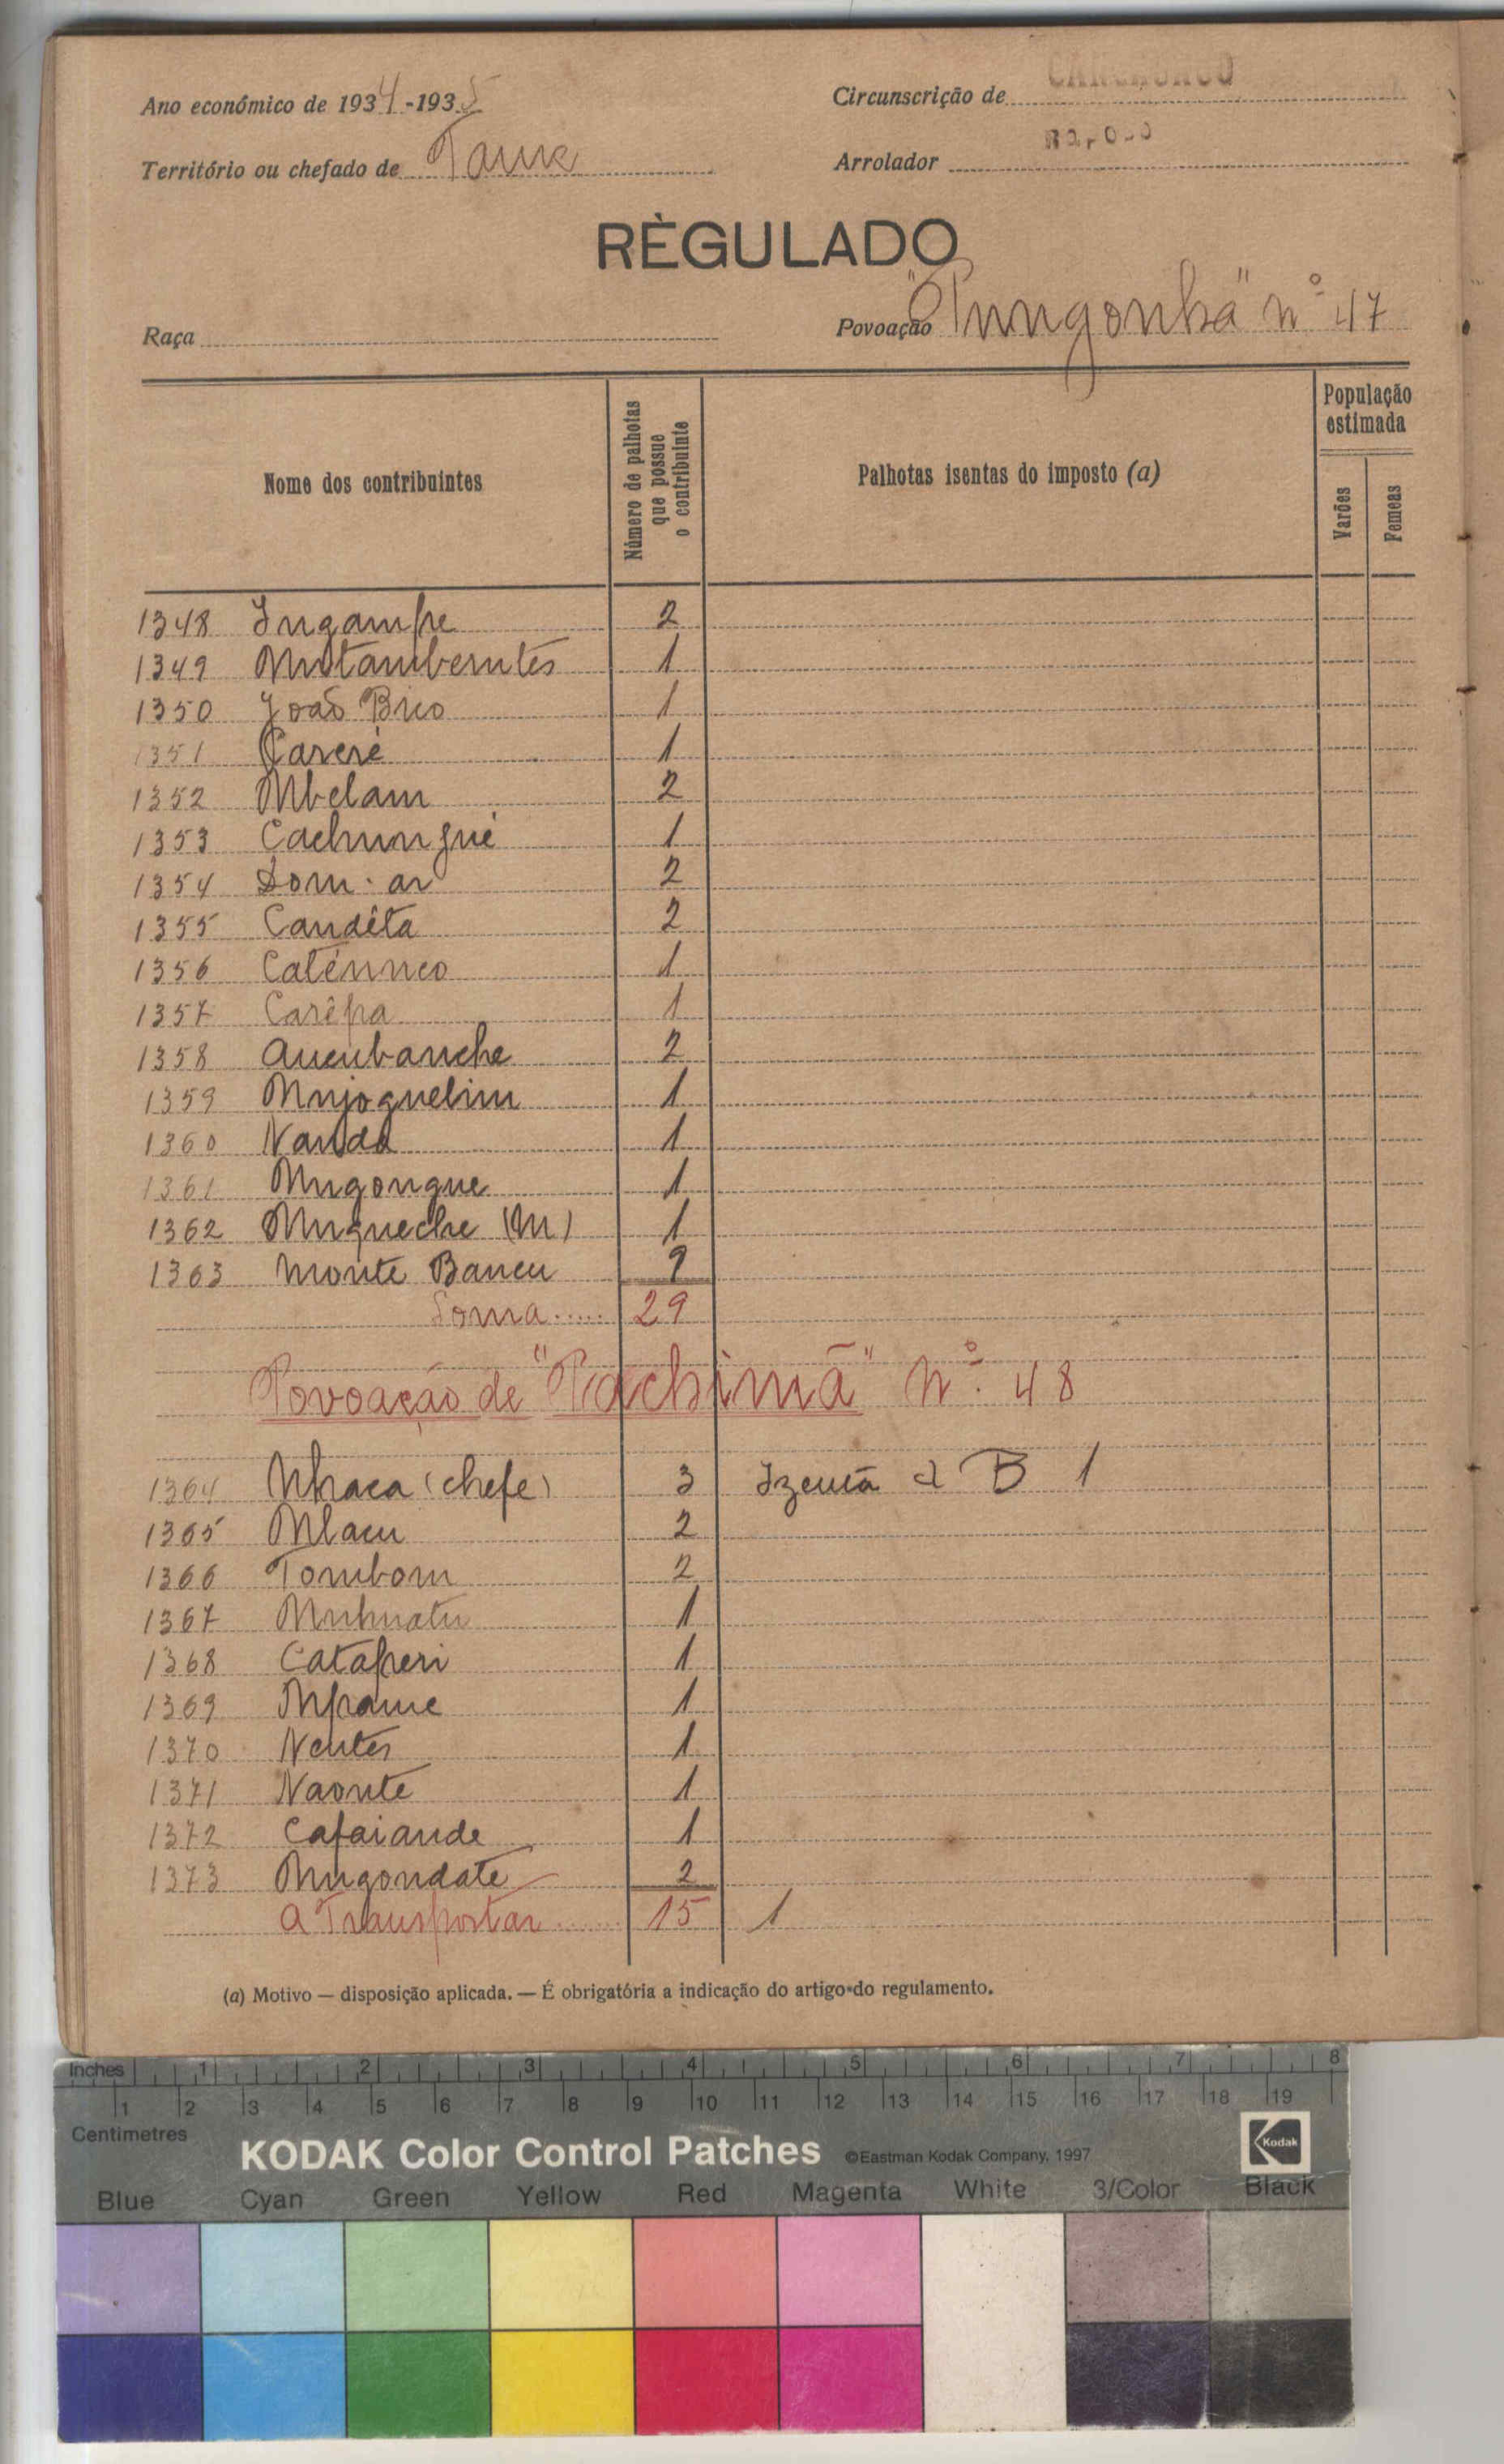 Ano económico de 1934-1935
Circunscrição de
Território ou chefado de Tame
Arrolador
RÈGULADO
Raça
Povoação "Pungonhá" nº 47
Nome dos contribuintes
Número de palhotas que possue o contribuinte
Palhotas isentas do imposto (a)
População estimada
Varões
Femeas
1348 Ingampe 2
1349 Mutamberntés 1
1350 João Brico 1
1351 Careré 1
1352 Mbelam 2
1353 Cachungué 1
1354 Dom·ar 2
1355 Candêta 2
1356 Caténuco 1
1357 Carêpa 1
1358 Aucubanche 2
1359 Mnjoguelim 1
1360 Nanda 1
1361 Mugongue 1
1362 Mugueche (M) 1
1363 Monte Bancu 9
Soma..... 29
Povoação de "Pachimã" Nº 48
1364 Nhaca (chefe) 3 Izenta B 1
1365 Mlacu 2
1366 Tombom 2
1367 Muhuatu 1
1368 Cataperi 1
1369 Mpame 1
1370 Nentes 1
1371 Naonte 1
1372 Cafaiande 1
1373 Mugondate 2
A Transportar 15 1
(a) Motivo — disposição aplicada. — É obrigatória a indicação do artigo do regulamento.
Inches 1 2 3 4 5 6 7 8
1 2 3 4 5 6 7 8 9 10 11 12 13 14 15 16 17 18 19
Centimetres
KODAK Color Control Patches ©Eastman Kodak Company, 1997 Kodak
Blue Cyan Green Yellow Red Magenta White 3/Color Black